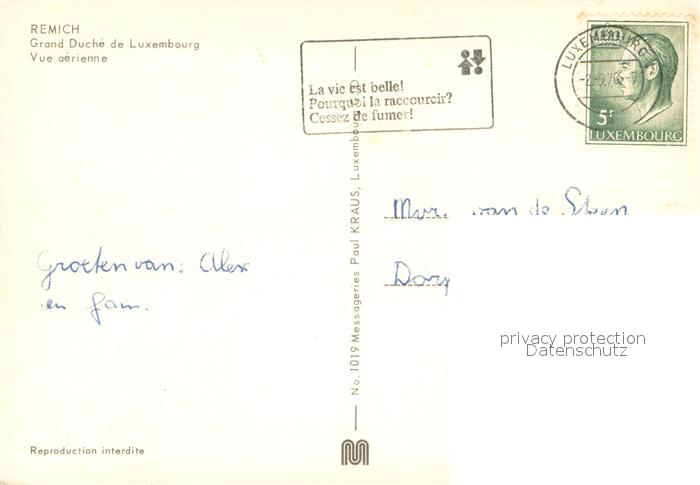 REMICH
Grand Duché de Luxembourg
Vue aérienne
La vie est belle!
Pourquoi la raccourcir?
Cessez de fumer!
LUXEMBOURG
5F
LUXEMBOURG
van de Steen
Groeten van: Alex
en fam.
No. 1019 Messageries Paul KRAUS, Luxembourg
privacy protection
Datenschutz
Reproduction interdite